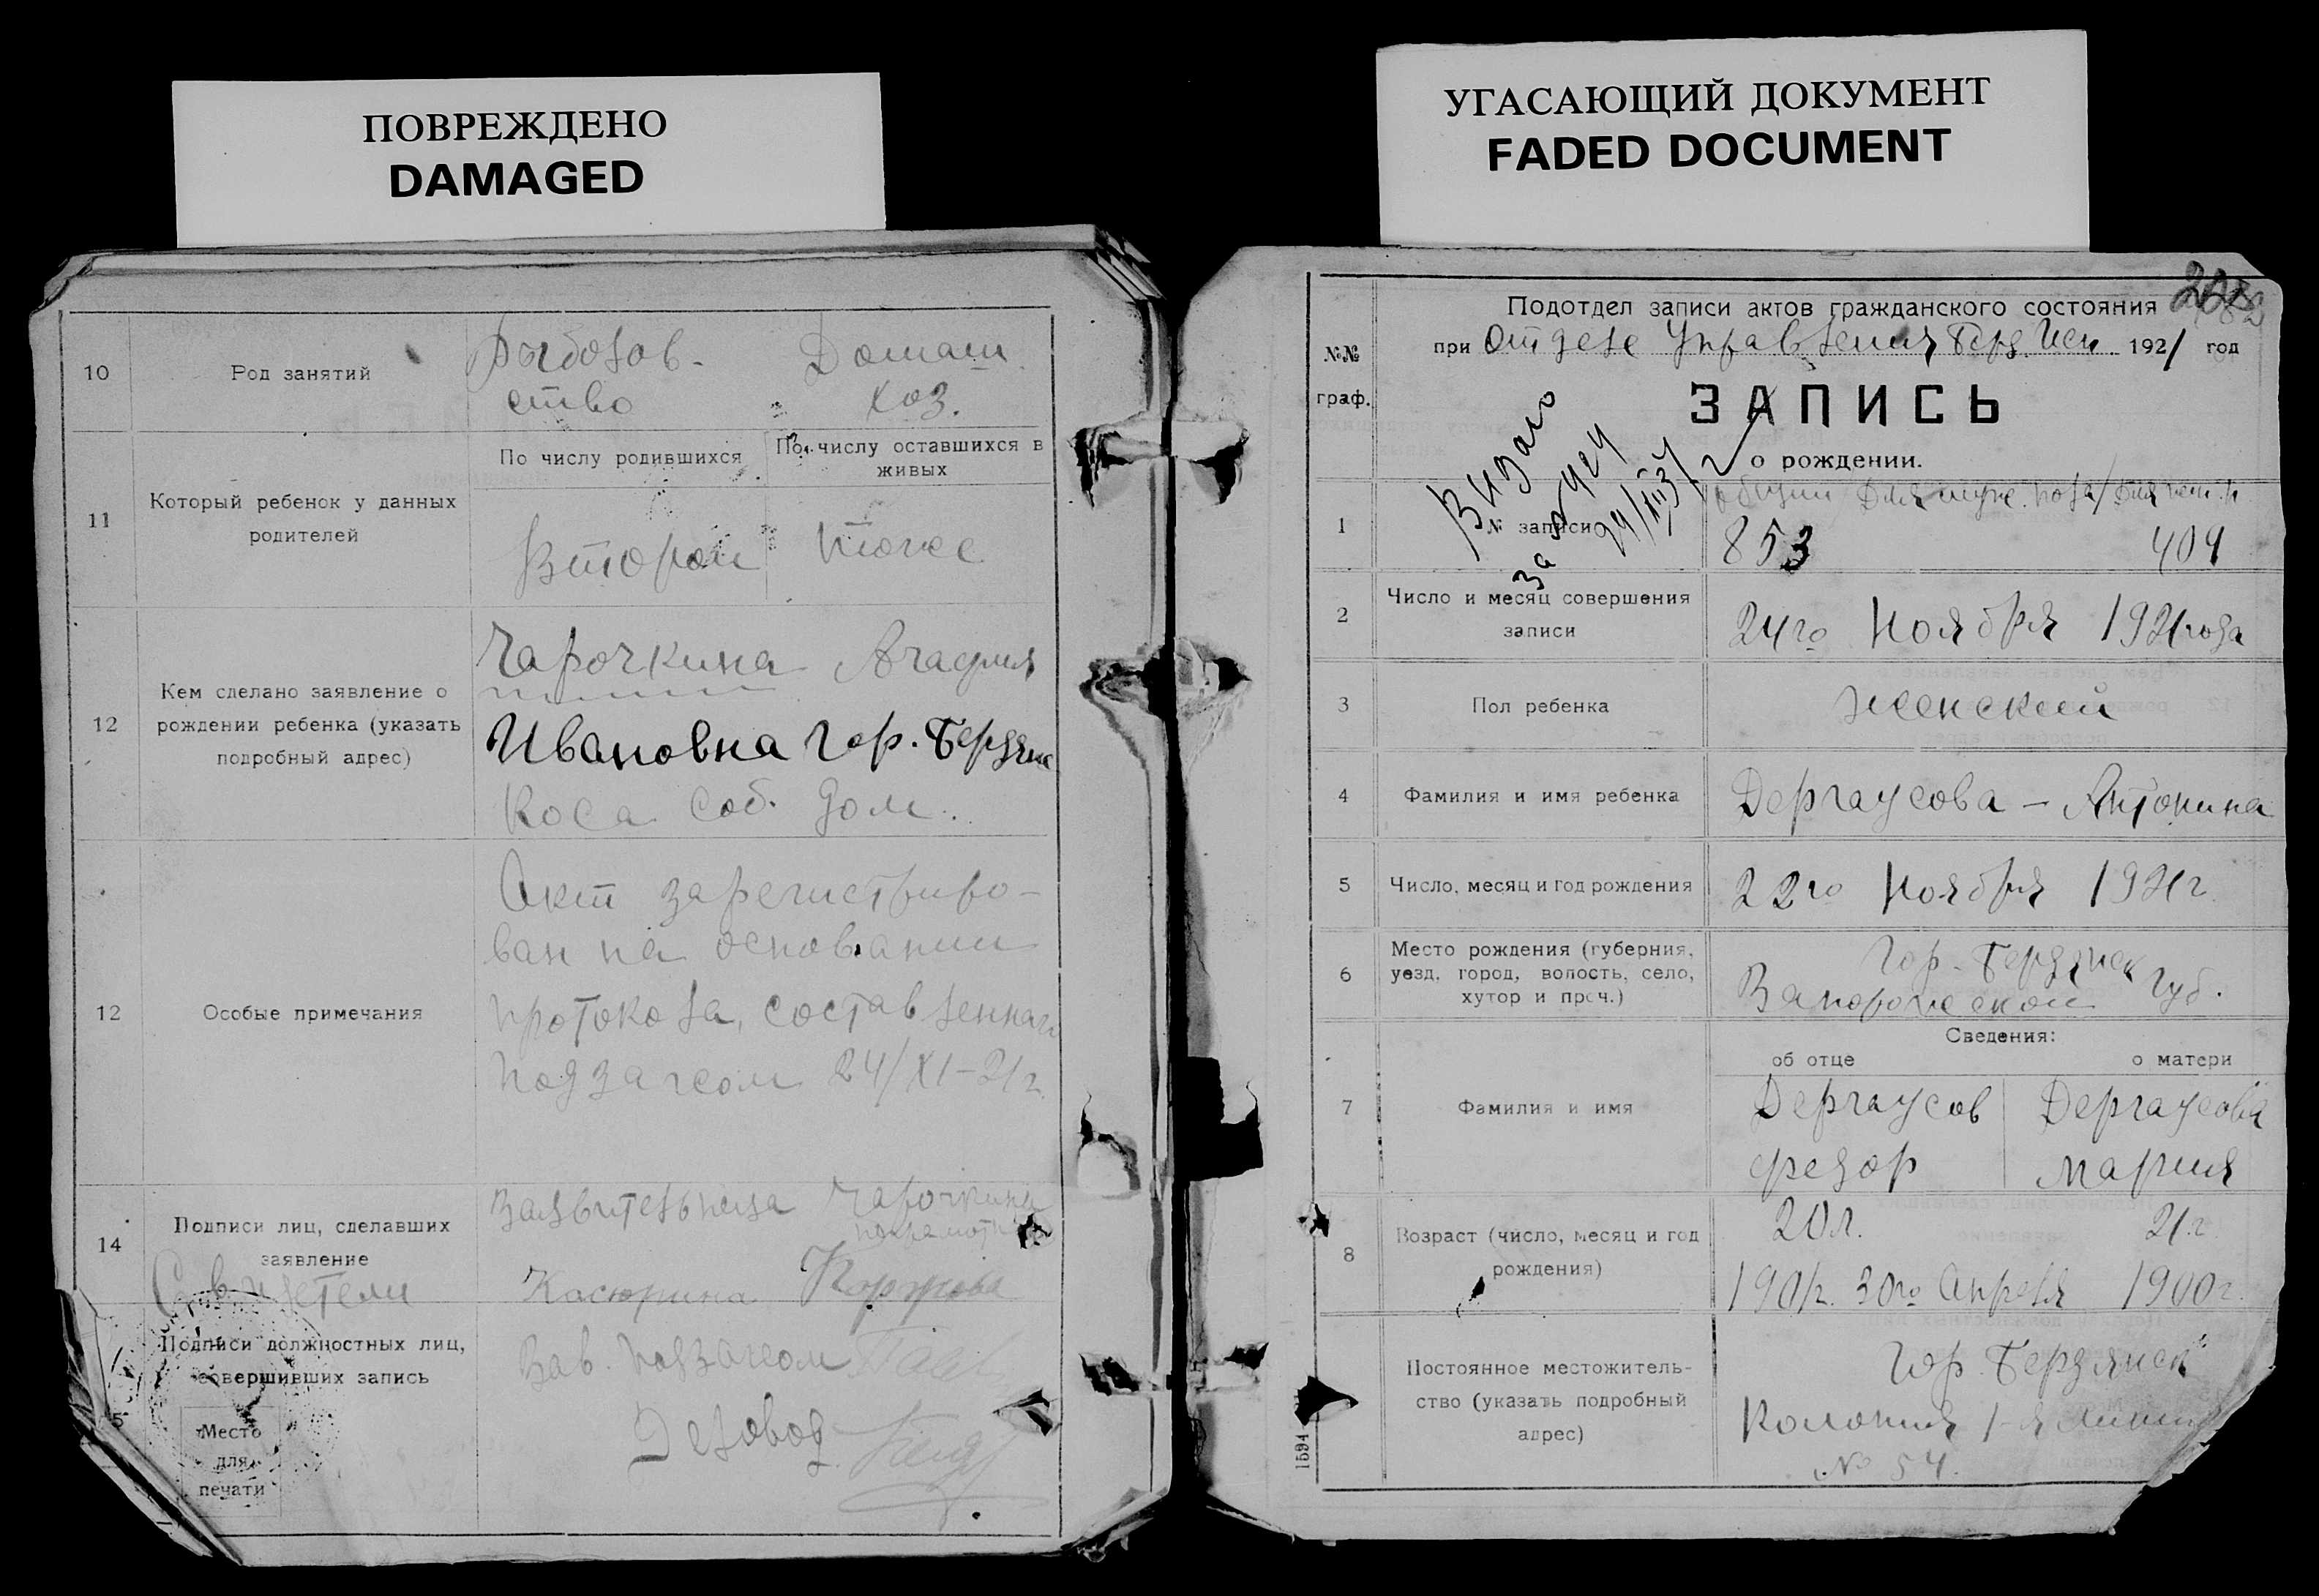 ПОВРЕЖДЕНО
DAMAGED
10
Род занятий
Рыболов-
ство
Домаш.
хоз.
11
Который ребенок у данных
родителей
По числу родившихся
По числу оставшихся в
живых
Второй
тоже
12
Кем сделано заявление о
рождении ребенка (указать
подробный адрес)
Чарочкина Агафия
Ивановна гор. Бердянск
Коса соб. дом.
12
Особые примечания
Акт зарегистриро-
ван на основании
протокола, составленнаго
подзагсом 24/XI-21г.
14
Подписи лиц, сделавших
заявление
Свидетели
Заявительница Чарочкина
неграмотная
Касюрина
5
Подписи должностных лиц,
совершивших запись
Место
для
печати
Зав. подзагсом
Деловод
УГАСАЮЩИЙ ДОКУМЕНТ
FADED DOCUMENT
№№
граф.
Подотдел записи актов гражданского состояния
при Отделе Управления Берд. Исп. 1921 год
ЗАПИСЬ
о рождении.
1
№ записи
853
404
2
Число и месяц совершения
записи
24го Ноября 1921 года
3
Пол ребенка
женский
4
Фамилия и имя ребенка
Дергаусова - Антонина
5
Число, месяц и год рождения
22го Ноября 1921г.
6
Место рождения (губерния,
уезд, город, волость, село,
хутор и проч.)
Гор. Бердянск
Запорожской губ.
Сведения:
об отце
о матери
7
Фамилия и имя
Дергаусов
Федор
Дергаусова
Мария
8
Возраст (число, месяц и год
рождения)
20л.
21г.
1901г. 30го Апреля
1900г.
Постоянное местожитель-
ство (указать подробный
адрес)
Гор. Бердянск
Колония 1-я линия
№ 54.
1594